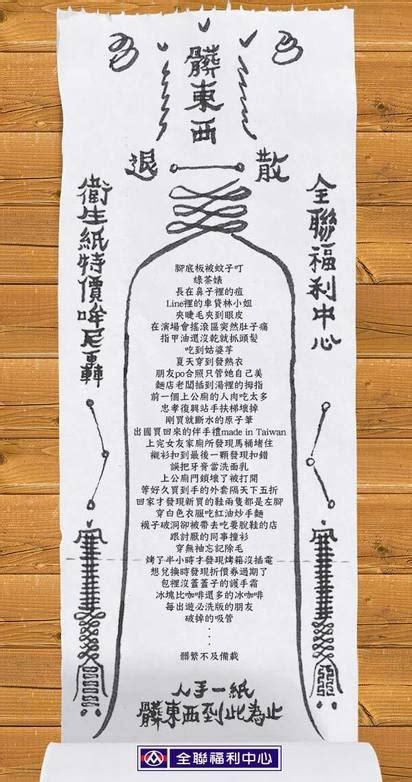 髒東西
退 散
全聯福利中心
衛生紙特價哞尼轟
腳底板被蚊子叮
綠茶婊
長在鼻子裡的痘
Line裡的車貸林小姐
夾睫毛夾到眼皮
在演場會搖滾區突然肚子痛
指甲油還沒乾就抓頭髮
吃到姑婆芋
夏天穿到發熱衣
朋友po合照只管她自己美
麵店老闆插到湯裡的拇指
前一個上公廁的人肉吃太多
忠孝復興站手扶梯壞掉
剛買就斷水的原子筆
出國買回來的伴手禮made in Taiwan
上完女友家廁所發現馬桶堵住
襯衫扣到最後一顆發現扣錯
誤把牙膏當洗面乳
上公廁門鎖壞了被打開
等好久買到手的外套隔天下五折
回家才發現新買的鞋兩隻都是左腳
穿白色衣服吃紅油炒手麵
襪子破洞卻被帶去吃要脫鞋的店
跟討厭的同事撞衫
穿無袖忘記除毛
烤了半小時才發現烤箱沒插電
想兌換時發現折價券過期了
包裡沒蓋蓋子的護手霜
冰塊比咖啡還多的冰咖啡
每出遊必洗版的朋友
破掉的吸管
.
.
.
髒繁不及備載
人手一紙
髒東西到此為止
全聯福利中心